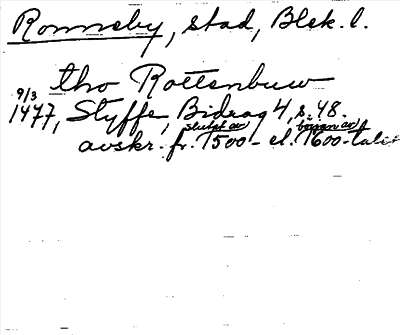 Ronneby, stad, Blek. l.
tho Rottenbuw
9/3
1477, Styffe, Bidrag 4, s. 48.
slutet av början av
avskr. fr. 1500- el. 1600-talet